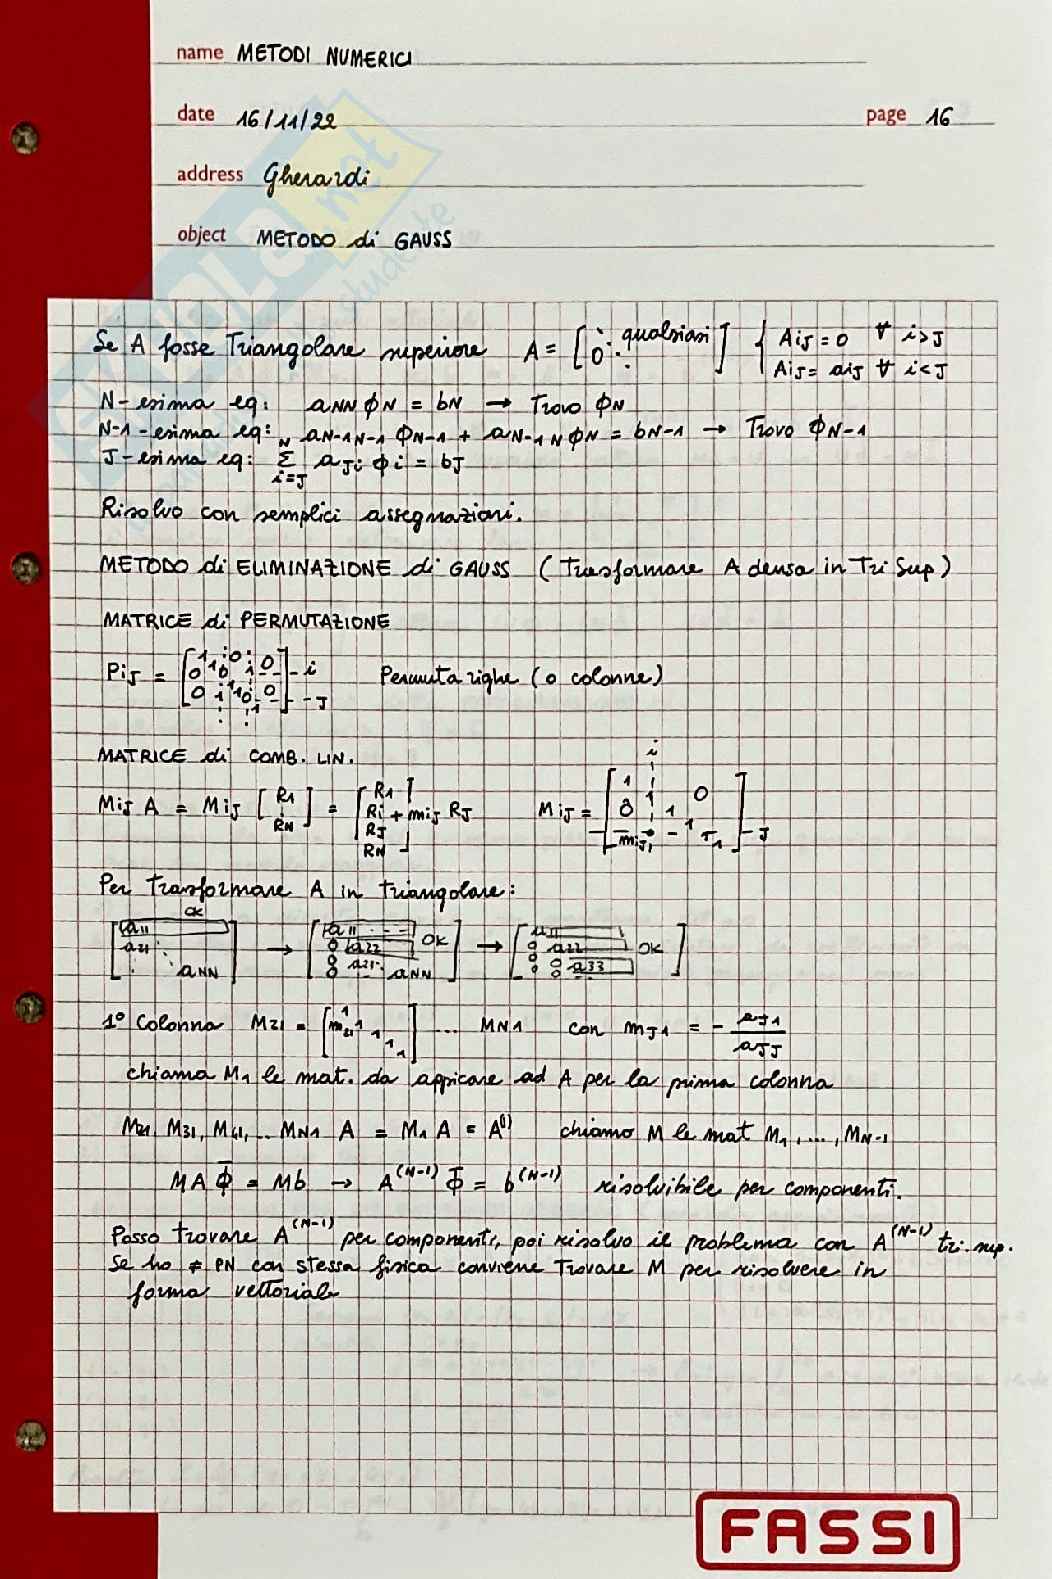 name METODI NUMERICI
date 16/11/22 page 16
address Gherardi
object METODO di GAUSS
SKUOLA.net
studente
Se A fosse Triangolare superiore A = [0 qualsiasi] { Aij = 0 ∀ i>J
Aij = aij ∀ i<J
N-esima eq: aNN ϕN = bN → Trovo ϕN
N-1-esima eq: aN-1N-1 ϕN-1 + aN-1 N ϕN = bN-1 → Trovo ϕN-1
J-esima eq: Σ_{i=J}^{N} aJi ϕi = bJ
Risolvo con semplici assegnazioni.
METODO di ELIMINAZIONE di GAUSS (Trasformare A densa in Tri Sup)
MATRICE di PERMUTAZIONE
PiJ = [ ] - i - J Permuta righe (o colonne)
MATRICE di COMB. LIN.
MiJ A = MiJ [R1 : RN] = [R1 Ri + miJ RJ RJ RN] MiJ = [1 1 0 0 1 1 miJ 1] i - J
Per trasformare A in triangolare:
[a11 OK a21 aNN] → [a11 0 a22 OK 0 0 aNN] → [a11 0 a22 OK 0 0 a33 0 0]
1° Colonna M21 = [1 m21 1 1 1] ... MN1 con mJ1 = - aJ1/aJJ
chiama M1 le mat. da appicare ad A per la prima colonna
M21, M31, M41, .. MN1 A = M1 A = A(1) chiamo M le mat M1, ..., MN-1
MA Φ̄ = Mb → A(N-1) Φ̄ = b(N-1) risolvibile per componenti.
Posso trovare A(N-1) per componenti, poi risolvo il problema con A(N-1) tri. sup.
Se ho ≠ PN con stessa fisica conviene Trovare M per risolvere in
forma vettoriale
FASSI